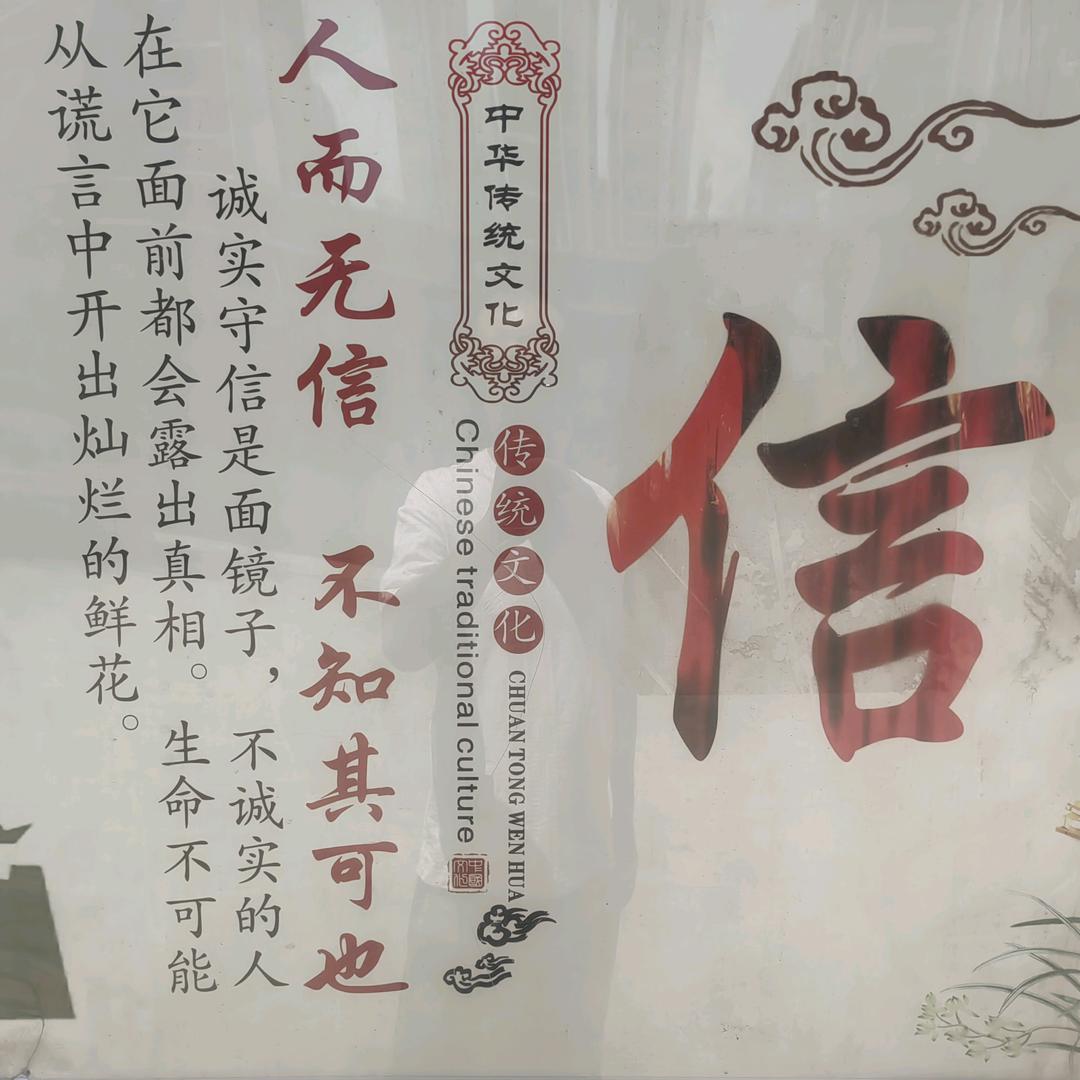 信
中华传统文化
传统文化
CHUAN TONG WEN HUA
Chinese traditional culture
中國文化
人而无信 不知其可也
诚实守信是面镜子，不诚实的人
在它面前都会露出真相。生命不可能
从谎言中开出灿烂的鲜花。